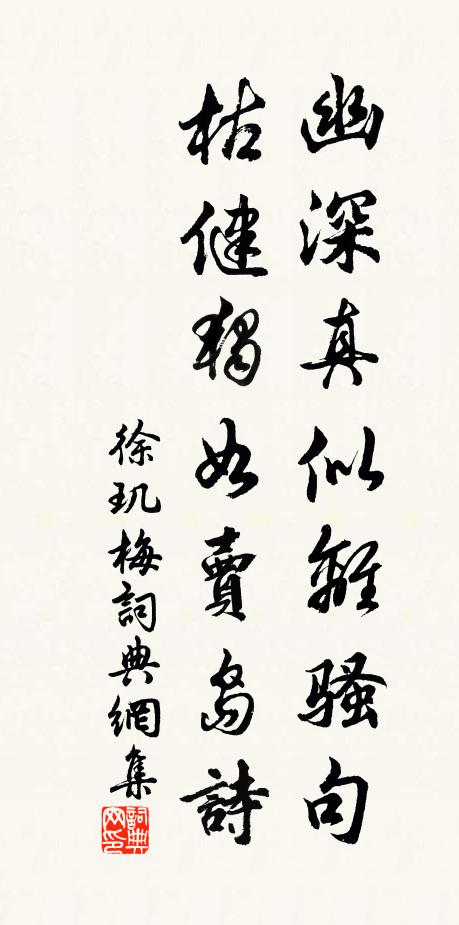 幽深真似離騷句
枯健猶如賣島詩
徐玑梅詞典網集
詞典网印